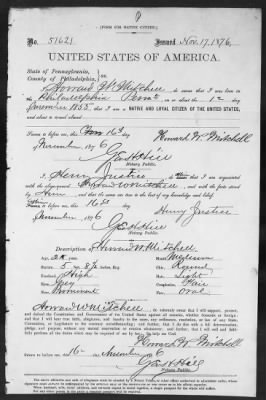 (FORM FOR NATIVE CITIZEN.)
No. 51621 Issued Nov. 17, 1876.
UNITED STATES OF AMERICA.
State of Pennsylvania,
County of Philadelphia,
I, Howard W. Mitchell, do swear that I was born in
Philadelphia Penna on the 1st day
1855; that I am a NATIVE AND LOYAL CITIZEN OF THE UNITED STATES,
and about to travel abroad.
Sworn to before me, this 16th
day of November, 1876
Howard W. Mitchell
Geo. H. Hill
Notary Public.
I, Henry Justice
acquainted with the above-named Howard W. Mitchell, and with the facts stated
by him
Sworn to before me, this 16th
day of November, 1876
Henry Justice
Geo. H. Hill
Notary Public.
Description of Howard W. Mitchell
Age, 21 years
Mouth, Medium
Stature, 5 feet inches, Eng.
Chin, Round
Forehead, High
Hair, Light
Eyes, Grey
Complexion, Fair
Nose, Prominent
Face, Oval
I, Howard W. Mitchell, do solemnly swear that I will support, protect,
and defend the Constitution and Government of the United States against all enemies, whether domestic or foreign;
and that I will bear true faith, allegiance, and loyalty to the same, any ordinance, resolution, or law of any State,
Convention, or Legislature to the contrary notwithstanding; and further, that I do this with a full determination,
pledge, and purpose, without any mental reservation or evasion whatsoever; and further, that I will well and faith-
fully perform all the duties which may be required of me by law: So help me God.
Howard W. Mitchell
Sworn to before me, this 16th day of November, 1876
Geo. H. Hill
Notary Public.